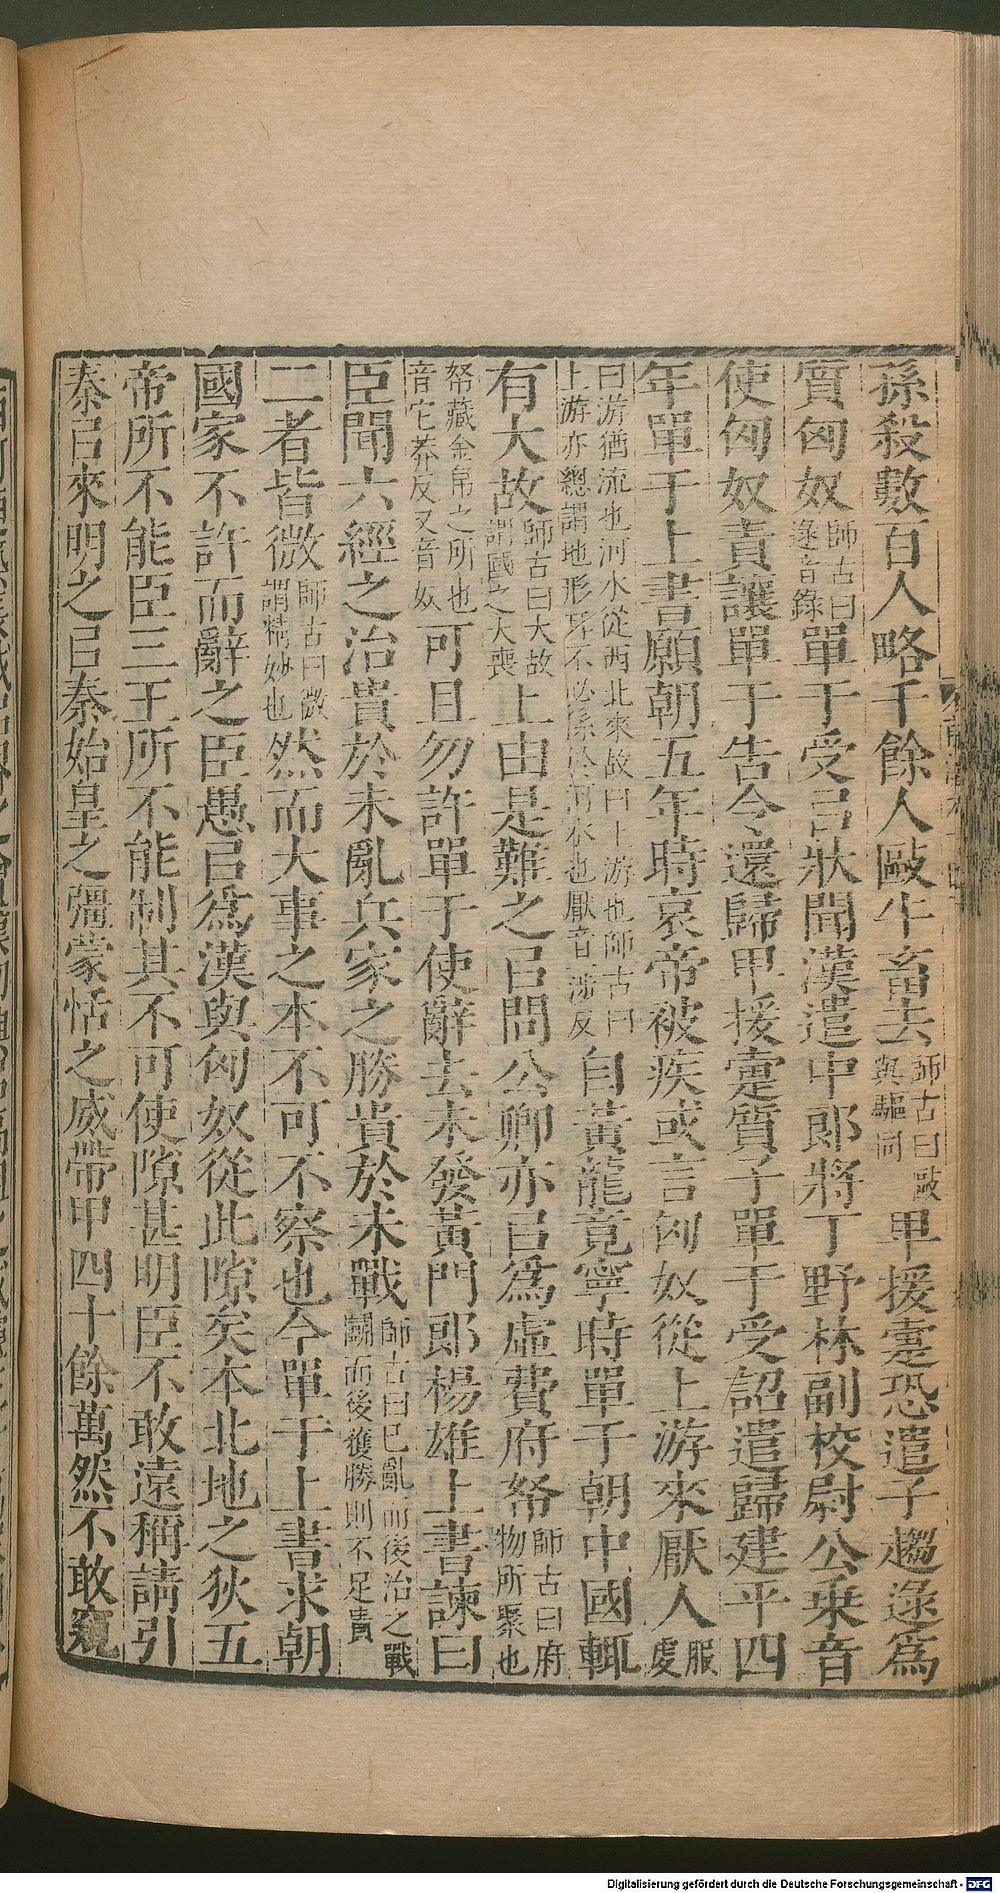 孫殺數百人略千餘人敺牛畜去師古曰敺與驅同卑援疐恐遣子趨逯爲
質匈奴師古曰逯音錄單于受㠯狀聞漢遣中郎將丁野林副校尉公乗音
使匈奴責讓單于告令還歸卑援疐質子單于受詔遣歸建平四
年單于上書願朝五年時哀帝被疾或言匈奴從上游來厭人服虔
曰游猶流也河水從西北來故曰上游也師古曰上游亦總謂地形耳不必係於河水也厭音涉反自黃龍竟寧時單于朝中國輒
有大故師古曰大故謂國之大喪上由是難之㠯問公卿亦㠯爲虛費府帑師古曰府物所聚也
帑藏金帛之所也音它莽反又音奴可且勿許單于使辭去未發黃門郎楊雄上書諫曰
臣聞六經之治貴於未亂兵家之勝貴於未戰師古曰已亂而後治之戰鬭而後獲勝則不足貴
二者皆微師古曰微謂精妙也然而大事之本不可不察也今單于上書求朝
國家不許而辭之臣愚㠯爲漢與匈奴從此隙矣本北地之狄五
帝所不能臣三王所不能制其不可使隙甚明臣不敢遠稱請引
秦㠯來明之㠯秦始皇之彊蒙恬之威帶甲四十餘萬然不敢窺
Digitalisierung gefördert durch die Deutsche Forschungsgemeinschaft - DFG